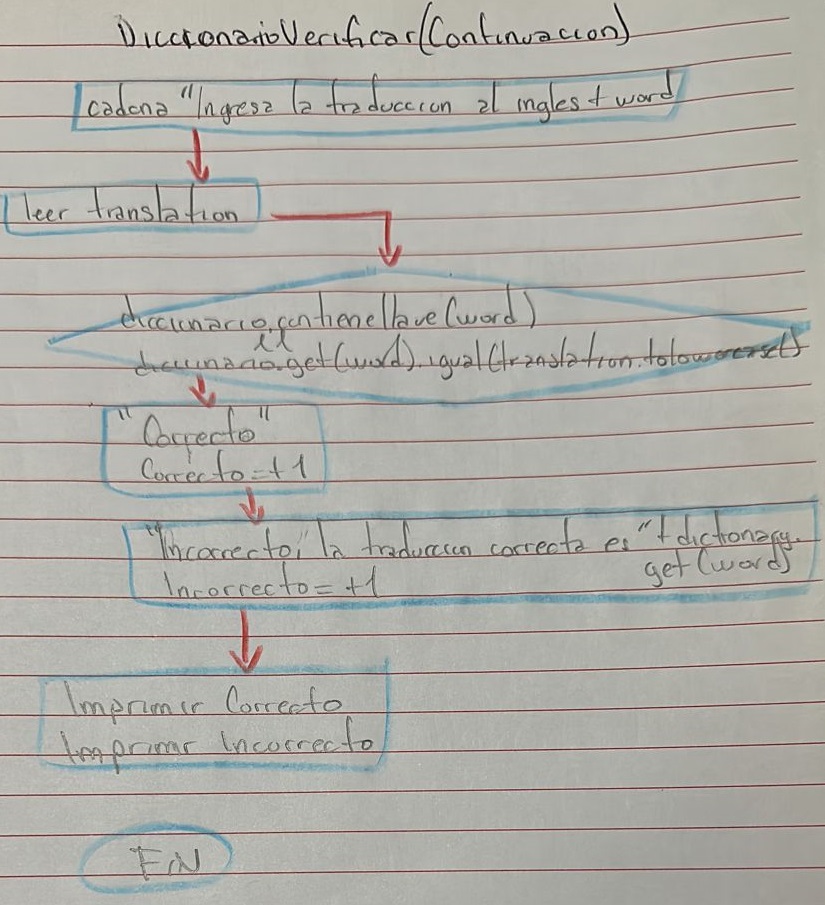 DiccionarioVerificar(Continuacion)
cadena "Ingresa la traduccion al ingles + word
leer translation
diccionario.contienellave(word)
&&
diccionario.get(word).igual(translation.tolowercase()
"Correcto"
Correcto=+1
"Incorrecto, la traduccion correcta es "+ dictionary.
get(word)
Incorrecto=+1
Imprimir Correcto
Imprimir Incorrecto
FIN